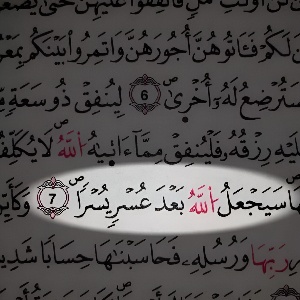 لَكُمْ فَـَٔاتُوهُنَّ أُجُورَهُنَّ وَأْتَمِرُوا۟ بَيْنَكُم بِمَعْ
فَسَتُرْضِعُ لَهُۥٓ أُخْرَىٰ ٦ لِيُنفِقْ ذُو سَعَةٍ مِّ
عَلَيْهِ رِزْقُهُۥ فَلْيُنفِقْ مِمَّآ ءَاتَىٰهُ ٱللَّهُ لَا يُكَلِّفُ
سَيَجْعَلُ ٱللَّهُ بَعْدَ عُسْرٍ يُسْرًا ٧ وَكَأَيِّن
رَبِّهَا وَرُسُلِهِۦ فَحَاسَبْنَٰهَا حِسَابًا شَدِيدً